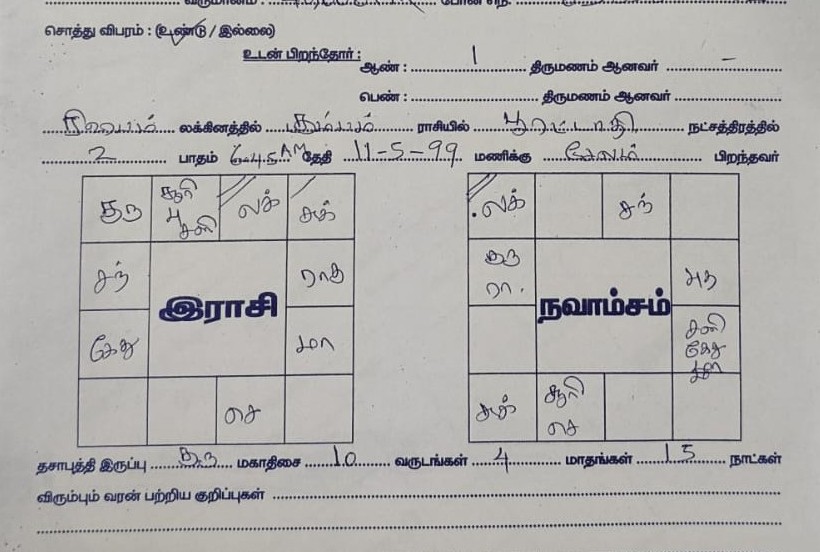 வருமானம் : போன் எண்.
சொத்து விபரம் : (உண்டு / இல்லை)
உடன் பிறந்தோர் :
ஆண் : 1 திருமணம் ஆனவர் –
பெண் : திருமணம் ஆனவர்
லக்கினத்தில் கும்பம் ராசியில் பூரட்டாதி நட்சத்திரத்தில்
2 பாதம் 6-45 AM தேதி 11-5-99 மணிக்கு சேலம் பிறந்தவர்
குரு சூரி பு சனி லக் சுக்
சந் ராகு
இராசி
கேது மா
செ
லக் சந்
குரு ரா.
நவாம்சம்
சனி கேது
சுக் சூரி செ
தசாபுத்தி இருப்பு குரு மகாதிசை 10 வருடங்கள் 4 மாதங்கள் 15 நாட்கள்
விரும்பும் வரன் பற்றிய குறிப்புகள்